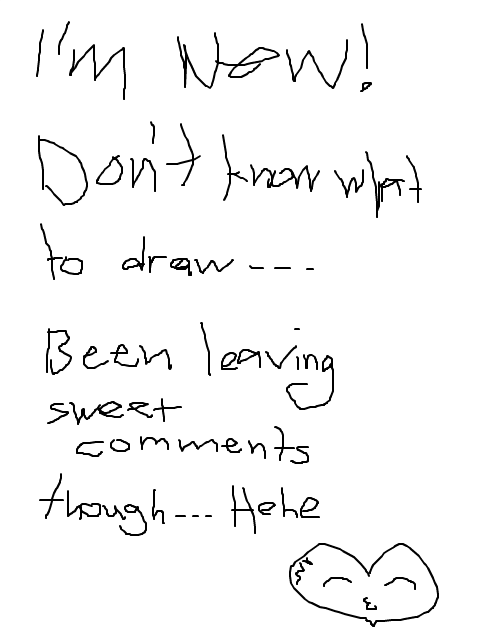 I'm New!
Don't know what
to draw---
Been leaving
sweet
comments
though--- Hehe